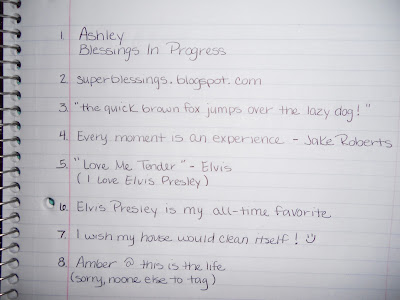 1. Ashley
Blessings In Progress
2. superblessings.blogspot.com
3. "the quick brown fox jumps over the lazy dog!"
4. Every moment is an experience - Jake Roberts
5. "Love Me Tender" - Elvis
( I Love Elvis Presley )
6. Elvis Presley is my all-time favorite
7. I wish my house would clean itself! ☺
8. Amber @ this is the life
(sorry, noone else to tag)